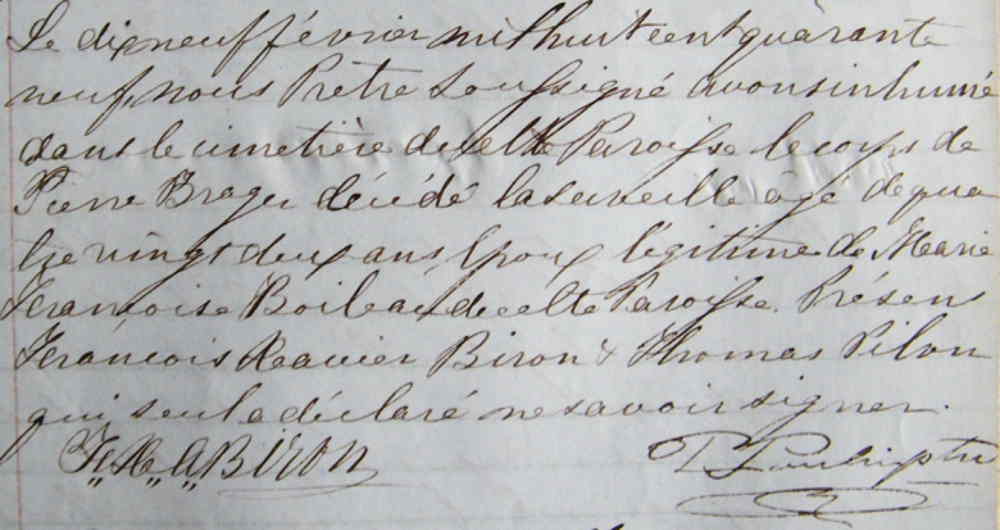 Le dix neuf février mil huit cent quarante
neuf, nous Prêtre Soussigné avons inhumé
dans le cimetière de cette Paroisse le corps de
Pierre Brager décédé la surveille âgé de qua
tre vingt deux ans Epoux légitime de Marie
Françoise Boileau de cette Paroisse. Présens
François Xavier Biron & Thomas Pilon
qui seul a déclaré ne savoir signer.
F. X. A. BIRON